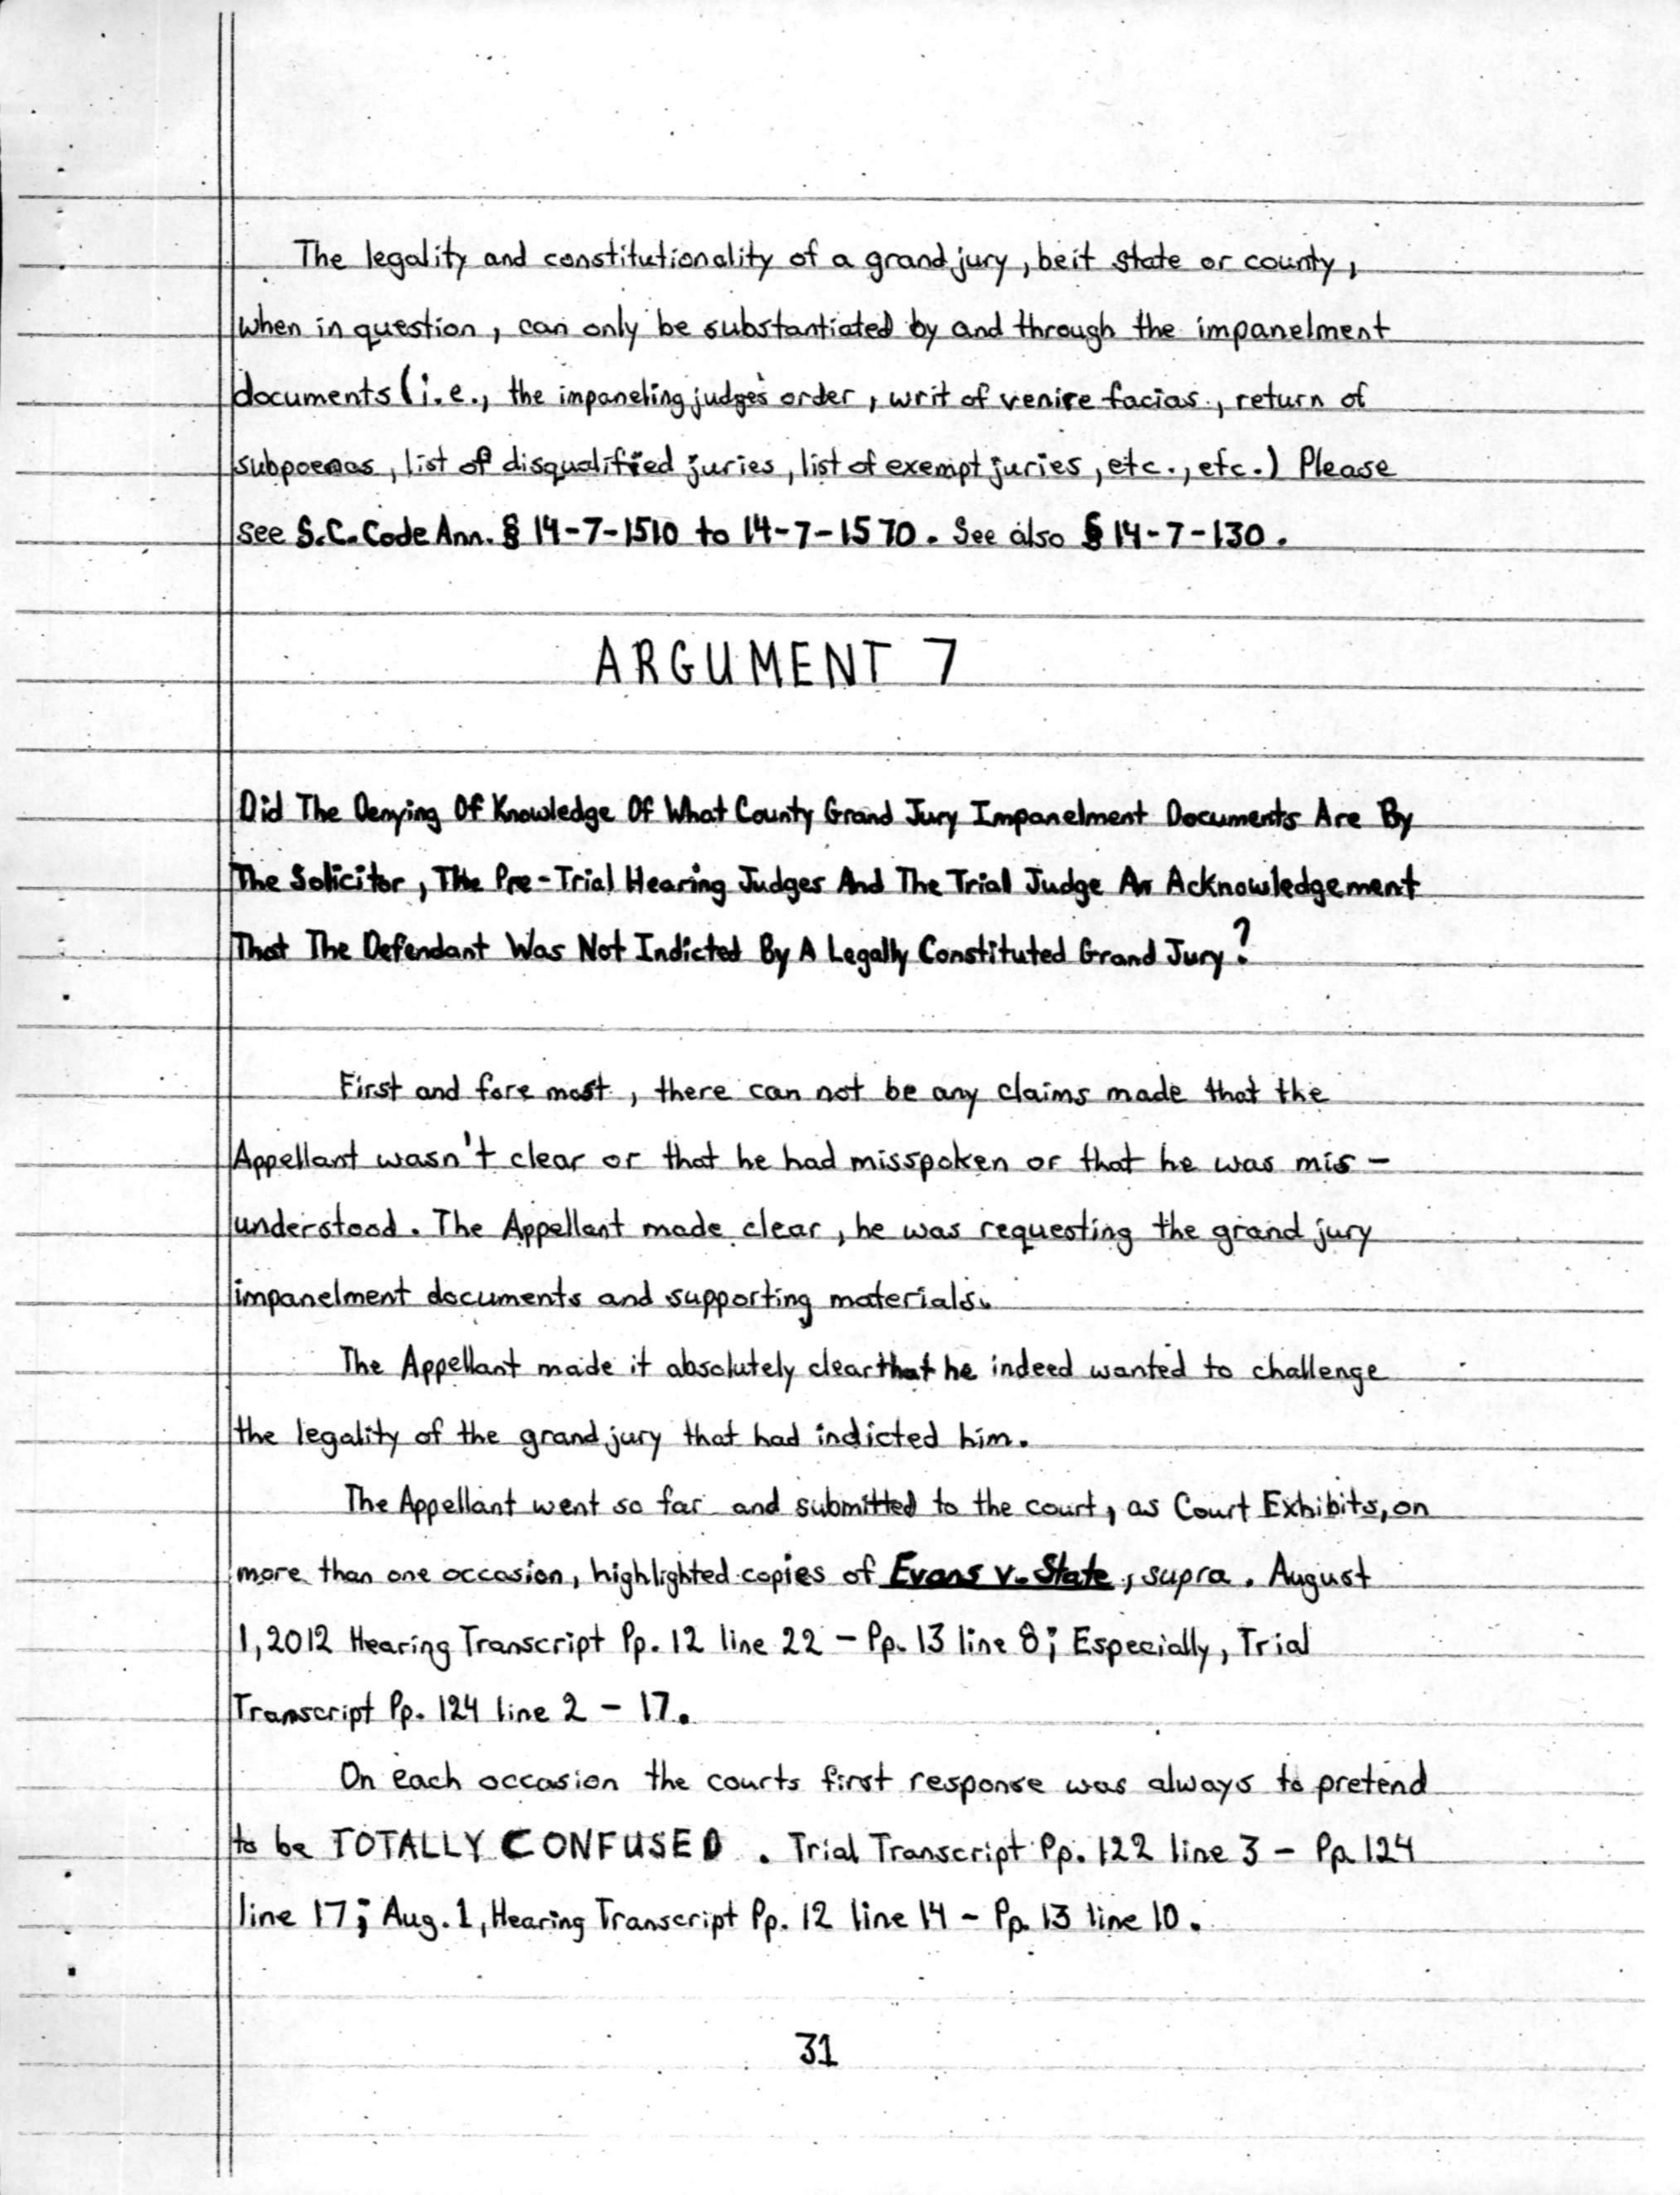 The legality and constitutionality of a grand jury, beit state or county,
when in question, can only be substantiated by and through the impanelment
documents (i.e., the impaneling judge's order, writ of venire facias, return of
subpoenas, list of disqualified juries, list of exempt juries, etc., etc.) Please
see S.C. Code Ann. § 14-7-1510 to 14-7-1570. See also § 14-7-130.
ARGUMENT 7
Did The Denying Of Knowledge Of What County Grand Jury Impanelment Documents Are By
The Solicitor, The Pre-Trial Hearing Judges And The Trial Judge An Acknowledgement
That The Defendant Was Not Indicted By A Legally Constituted Grand Jury?
First and fore most, there can not be any claims made that the
Appellant wasn't clear or that he had misspoken or that he was mis-
understood. The Appellant made clear, he was requesting the grand jury
impanelment documents and supporting materials.
The Appellant made it absolutely clear that he indeed wanted to challenge
the legality of the grand jury that had indicted him.
The Appellant went so far and submitted to the court, as Court Exhibits, on
more than one occasion, highlighted copies of Evans v. State, supra. August
1, 2012 Hearing Transcript Pp. 12 line 22 - Pp. 13 line 8; Especially, Trial
Transcript Pp. 124 line 2 - 17.
On each occasion the courts first response was always to pretend
to be TOTALLY CONFUSED. Trial Transcript Pp. 122 line 3 - Pp. 124
line 17; Aug. 1, Hearing Transcript Pp. 12 line 14 - Pp. 13 line 10.
31